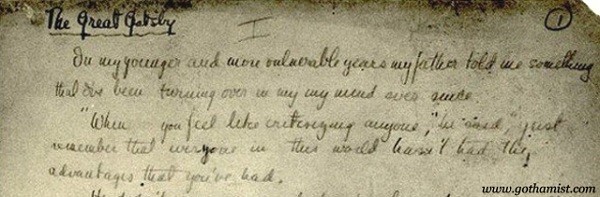 The Great Gatsby
I
1
In my younger and more vulnerable years my father told me something
that I've been turning over in my my mind ever since.
"When you feel like criticizing anyone," he said, "just
remember that everyone in this world hasn't had the
advantages that you've had.
He didn't
www.gothamist.com